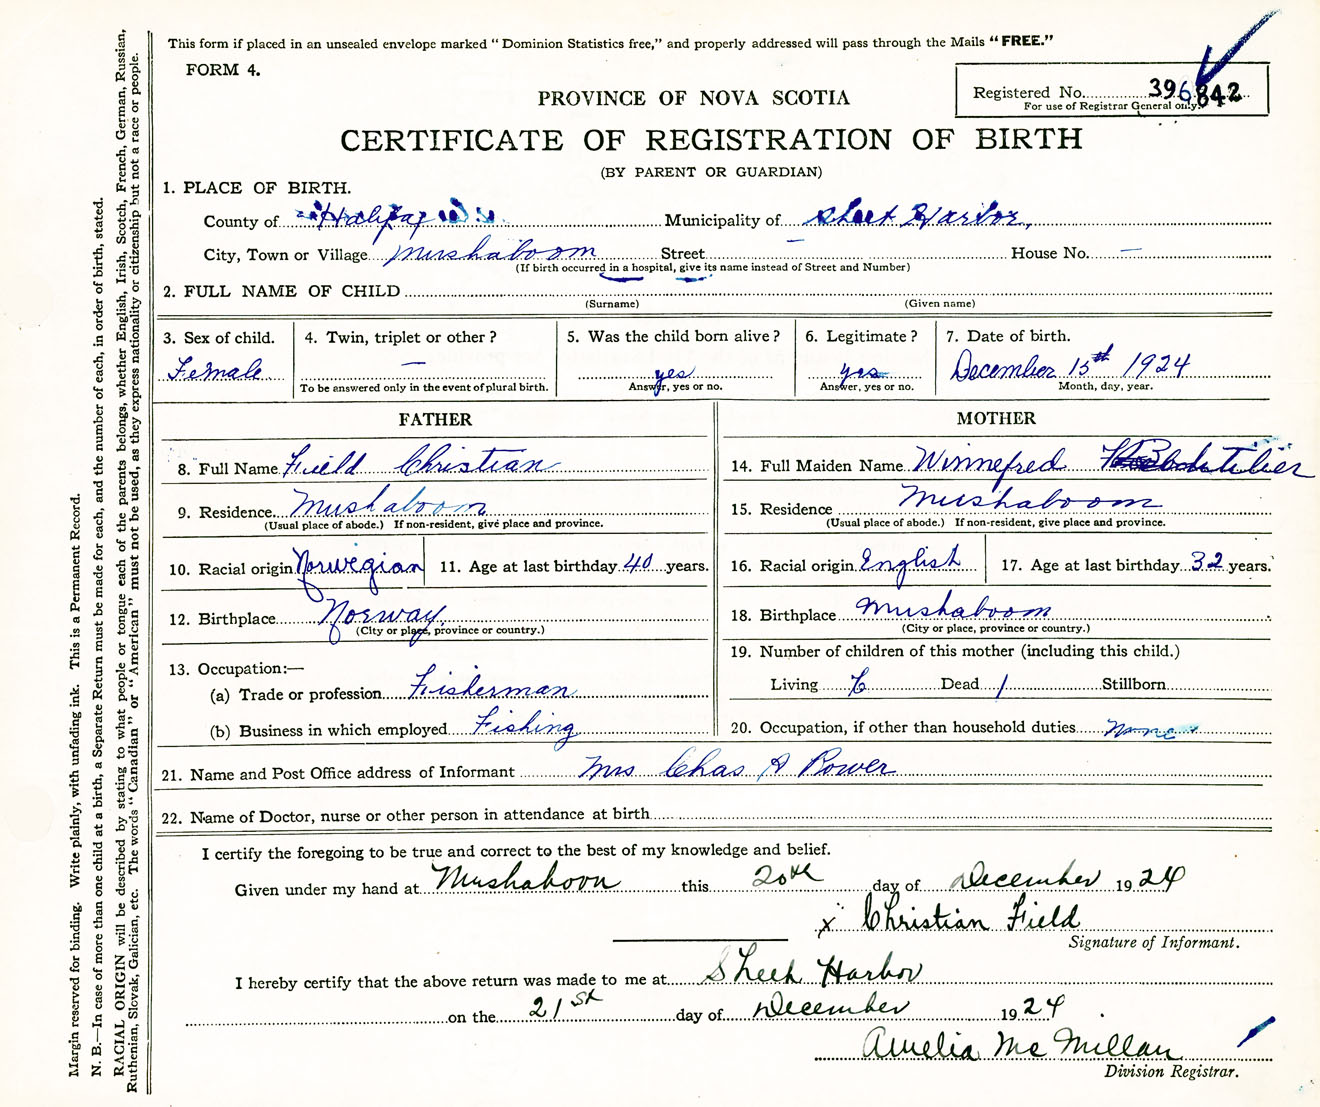 This form if placed in an unsealed envelope marked "Dominion Statistics free," and properly addressed will pass through the Mails "FREE."
FORM 4.
Registered No. 396842
For use of Registrar General only.
PROVINCE OF NOVA SCOTIA
CERTIFICATE OF REGISTRATION OF BIRTH
(BY PARENT OR GUARDIAN)
1. PLACE OF BIRTH.
County of Halifax Municipality of Sheet Harbor,
City, Town or Village Mushaboom Street — House No. —
(If birth occurred in a hospital, give its name instead of Street and Number)
2. FULL NAME OF CHILD
(Surname) (Given name)
3. Sex of child. 4. Twin, triplet or other? 5. Was the child born alive? 6. Legitimate? 7. Date of birth.
Female — yes yes December 15th 1924
To be answered only in the event of plural birth. Answer, yes or no. Answer, yes or no. Month, day, year.
FATHER MOTHER
8. Full Name Field Christian 14. Full Maiden Name Winnefred
9. Residence Mushaboom 15. Residence Mushaboom
(Usual place of abode.) If non-resident, give place and province. (Usual place of abode.) If non-resident, give place and province.
10. Racial origin Norwegian 11. Age at last birthday 40 years. 16. Racial origin English 17. Age at last birthday 32 years.
12. Birthplace Norway 18. Birthplace Mushaboom
(City or place, province or country.) (City or place, province or country.)
13. Occupation:— 19. Number of children of this mother (including this child.)
(a) Trade or profession Fisherman Living 6 Dead 1 Stillborn
(b) Business in which employed Fishing 20. Occupation, if other than household duties None
21. Name and Post Office address of Informant Mrs Chas A Power
22. Name of Doctor, nurse or other person in attendance at birth
I certify the foregoing to be true and correct to the best of my knowledge and belief.
Given under my hand at Mushaboon this 20th day of December 1924
x Christian Field
Signature of Informant.
I hereby certify that the above return was made to me at Sheet Harbor
on the 21st day of December 1924
Amelia McMillan
Division Registrar.
Margin reserved for binding. Write plainly, with unfading ink. This is a Permanent Record.
N. B.—In case of more than one child at a birth, a Separate Return must be made for each, and the number of each, in order of birth, stated.
RACIAL ORIGIN will be described by stating to what people or tongue each of the parents belongs, whether English, Irish, Scotch, French, German, Russian,
Ruthenian, Slovak, Galician, etc. The words "Canadian" or "American" must not be used, as they express nationality or citizenship but not a race or people.